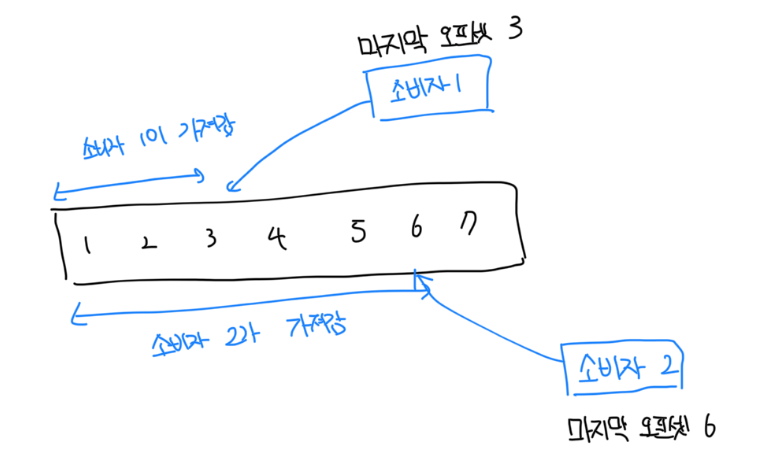 마지막 오프셋 3
소비자 1
소비자 1이 가져감
1 2 3 4 5 6 7
소비자 2가 가져감
소비자 2
마지막 오프셋 6